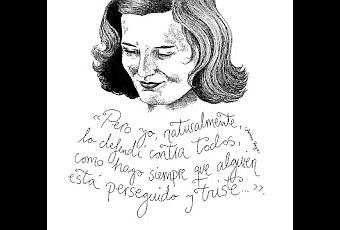 «Pero yo, naturalmente,
lo defendí contra todos,
como hago siempre que alguien
está perseguido y triste...».